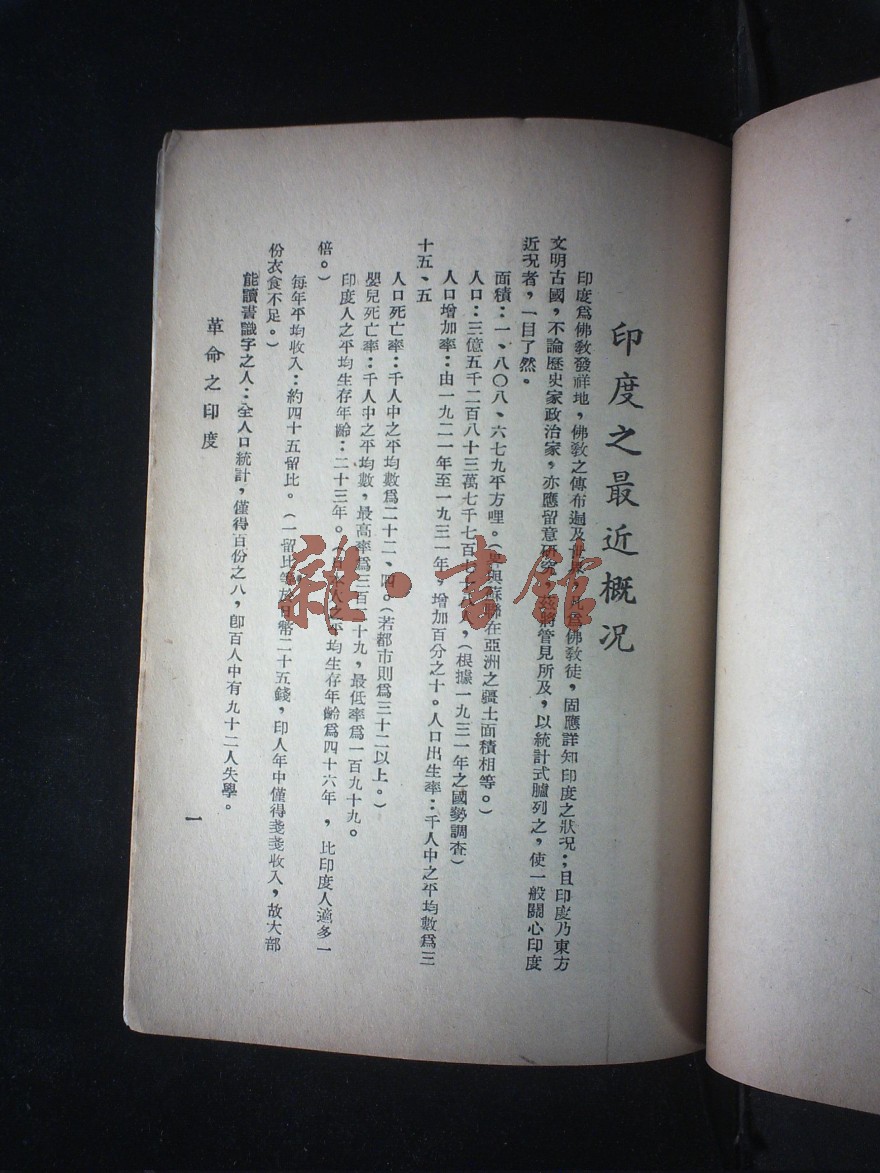 印度之最近概况
印度爲佛敎發祥地，佛敎之傳布遍及世界，凡爲佛敎徒，固應詳知印度之狀況；且印度乃東方
文明古國，不論歷史家政治家，亦應留意研究，茲將管見所及，以統計式臚列之，使一般關心印度
近況者，一目了然。
面積：一、八〇八、六七九平方哩。（與蘇聯在亞洲之疆土面積相等。）
人口：三億五千二百八十三萬七千七百七十人，（根據一九三一年之國勢調查）
人口增加率：由一九二一年至一九三一年，增加百分之十。人口出生率：千人中之平均數爲三
十五、五
人口死亡率：千人中之平均數爲二十二、四。（若都市則爲三十二以上。）
嬰兒死亡率：千人中之平均數，最高率爲三百二十九，最低率爲一百九十九。
印度人之平均生存年齡：二十三年。（日本人之平均生存年齡爲四十六年，比印度人適多一
倍。）
每年平均收入：約四十五留比。（一留比等於日幣二十五錢，印人年中僅得戔戔收入，故大部
份衣食不足。）
能讀書識字之人：全人口統計，僅得百份之八，卽百人中有九十二人失學。
革命之印度
一
雜·書館